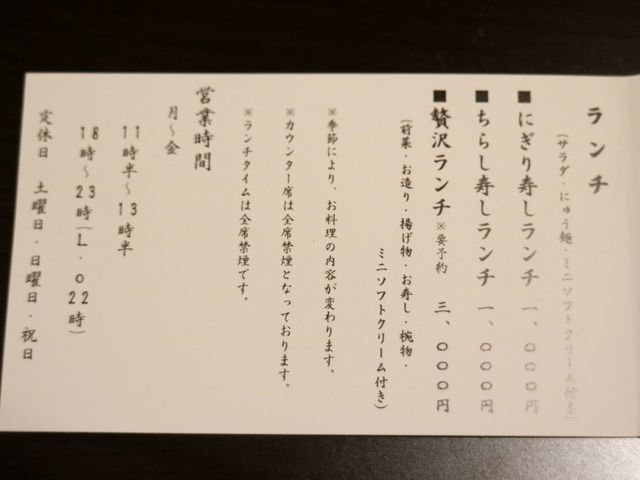 ランチ
(サラダ・にゅう麺・ミニソフトクリーム付き)
■にぎり寿しランチ 一、〇〇〇円
■ちらし寿しランチ 一、〇〇〇円
■贅沢ランチ ※要予約 三、〇〇〇円
(前菜・お造り・揚げ物・お寿し・椀物・
ミニソフトクリーム付き)
※季節により、お料理の内容が変わります。
※カウンター席は全席禁煙となっております。
※ランチタイムは全席禁煙です。
営業時間
月〜金
11時半〜13時半
18時〜23時(L.o22時)
定休日 土曜日・日曜日・祝日